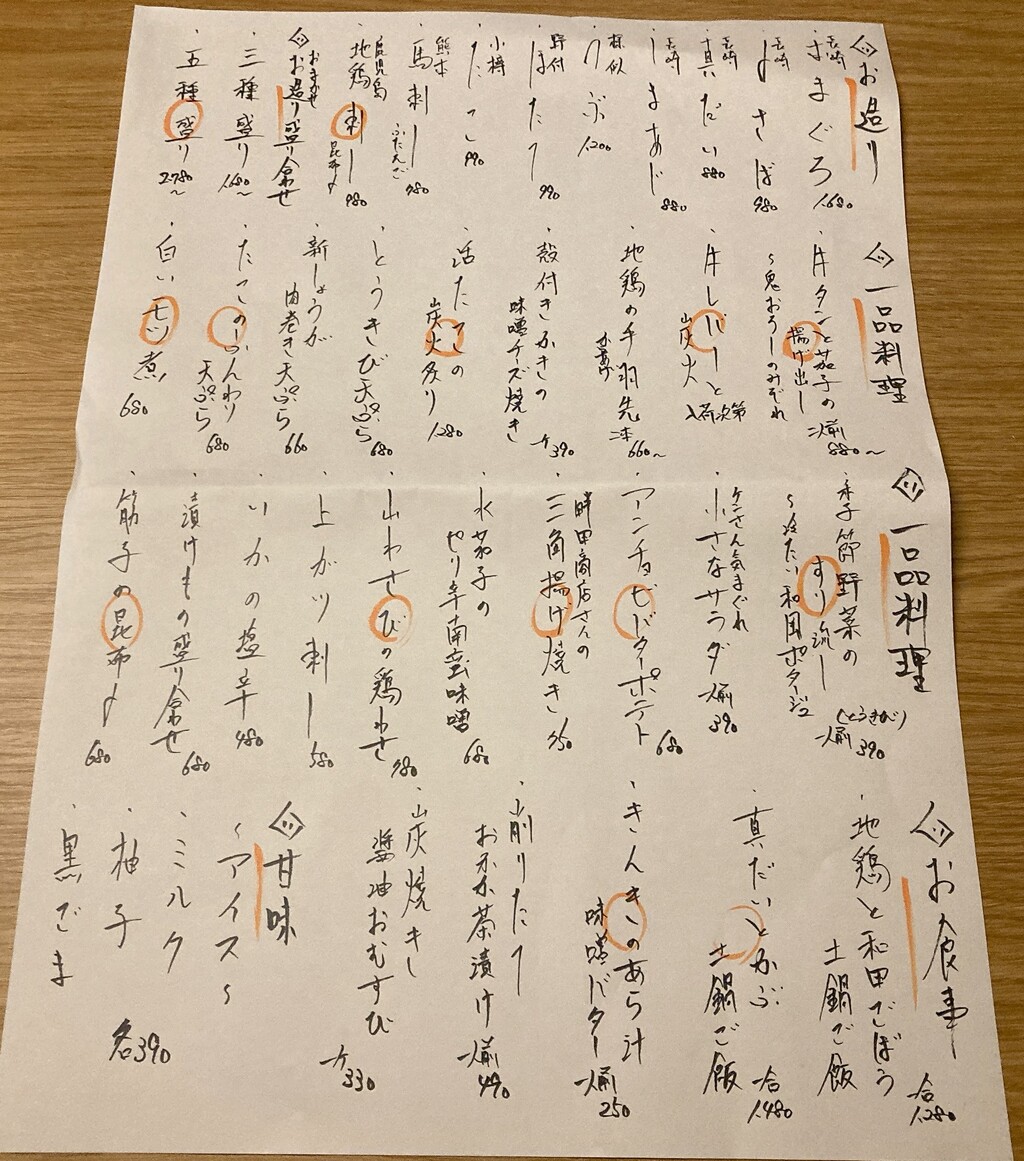 お造り
長崎 生まぐろ 1.680
長崎 〆さば 980
長崎 真だい 880
長崎 しまあじ 880
つぶ 1200
野付 ほたて 990
小樽 たこ 990
熊本 馬刺し ふたえご 980
鹿児島 地鶏刺し 昆布〆 980
おまかせ
お造り盛り合わせ
三種盛り 1.680〜
五種盛り 2.780〜
一品料理
牛タンと茄子の揚げ出し
〜鬼おろしのみぞれ 一人前 880〜
牛レバーと
炭火 入荷次第
地鶏の手羽先
二本 660〜
殻付きかきの
味噌チーズ焼き 一ケ 390
活たこの
炭火炙り 1.280
とうきび天ぷら 680
新しょうが
肉巻き天ぷら 660
たこのふんわり
天ぷら 680
白いモツ煮 680
一品料理
季節野菜の
すり流し
〜冷たい和風ポタージュ
(とうきび) 一人前 390
ケンさん気まぐれ
小さなサラダ 一人前 390
アンチョビバターポテト 680
畔田商店さんの
三角揚げ焼き
水茄子の
ピリ辛南蛮味噌 680
山わさびの鶏わさ
上ガツ刺し 580
いかの塩辛 480
漬けもの盛り合わせ 680
筋子の昆布〆 680
お食事
地鶏と和田ごぼう
土鍋ご飯 一合 1.280
真だいとかぶ
土鍋ご飯 一合 1.480
きんきのあら汁
味噌バター 一人前 250
削りたて
おかか茶漬け 一人前 490
炭焼き
醤油おむすび 一ケ 330
甘味
〜アイス〜
ミルク
柚子
黒ごま
各390